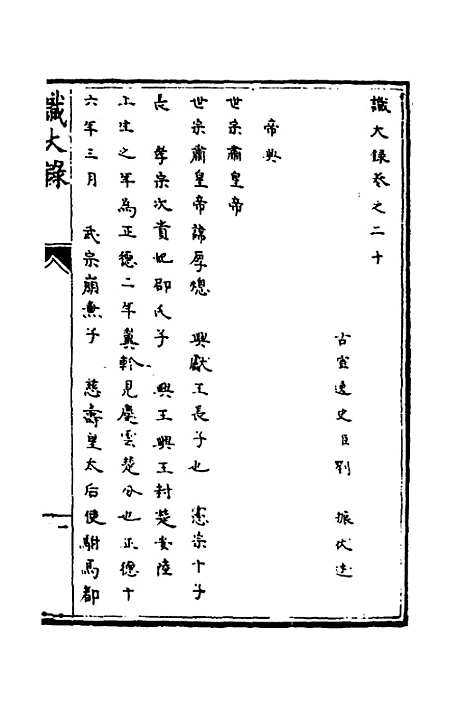 識大錄卷之二十
古宣逸史臣劉 振伏述
帝典
世宗肅皇帝
世宗肅皇帝諱厚熜 興獻王長子也 憲宗十子
長 孝宗次貴妃邵氏子 興王興王封楚安陸
上生之年為正德二年翼軫見慶雲楚分也正德十
六年三月 武宗崩無子 慈壽皇太后使駙馬都
識大錄
一